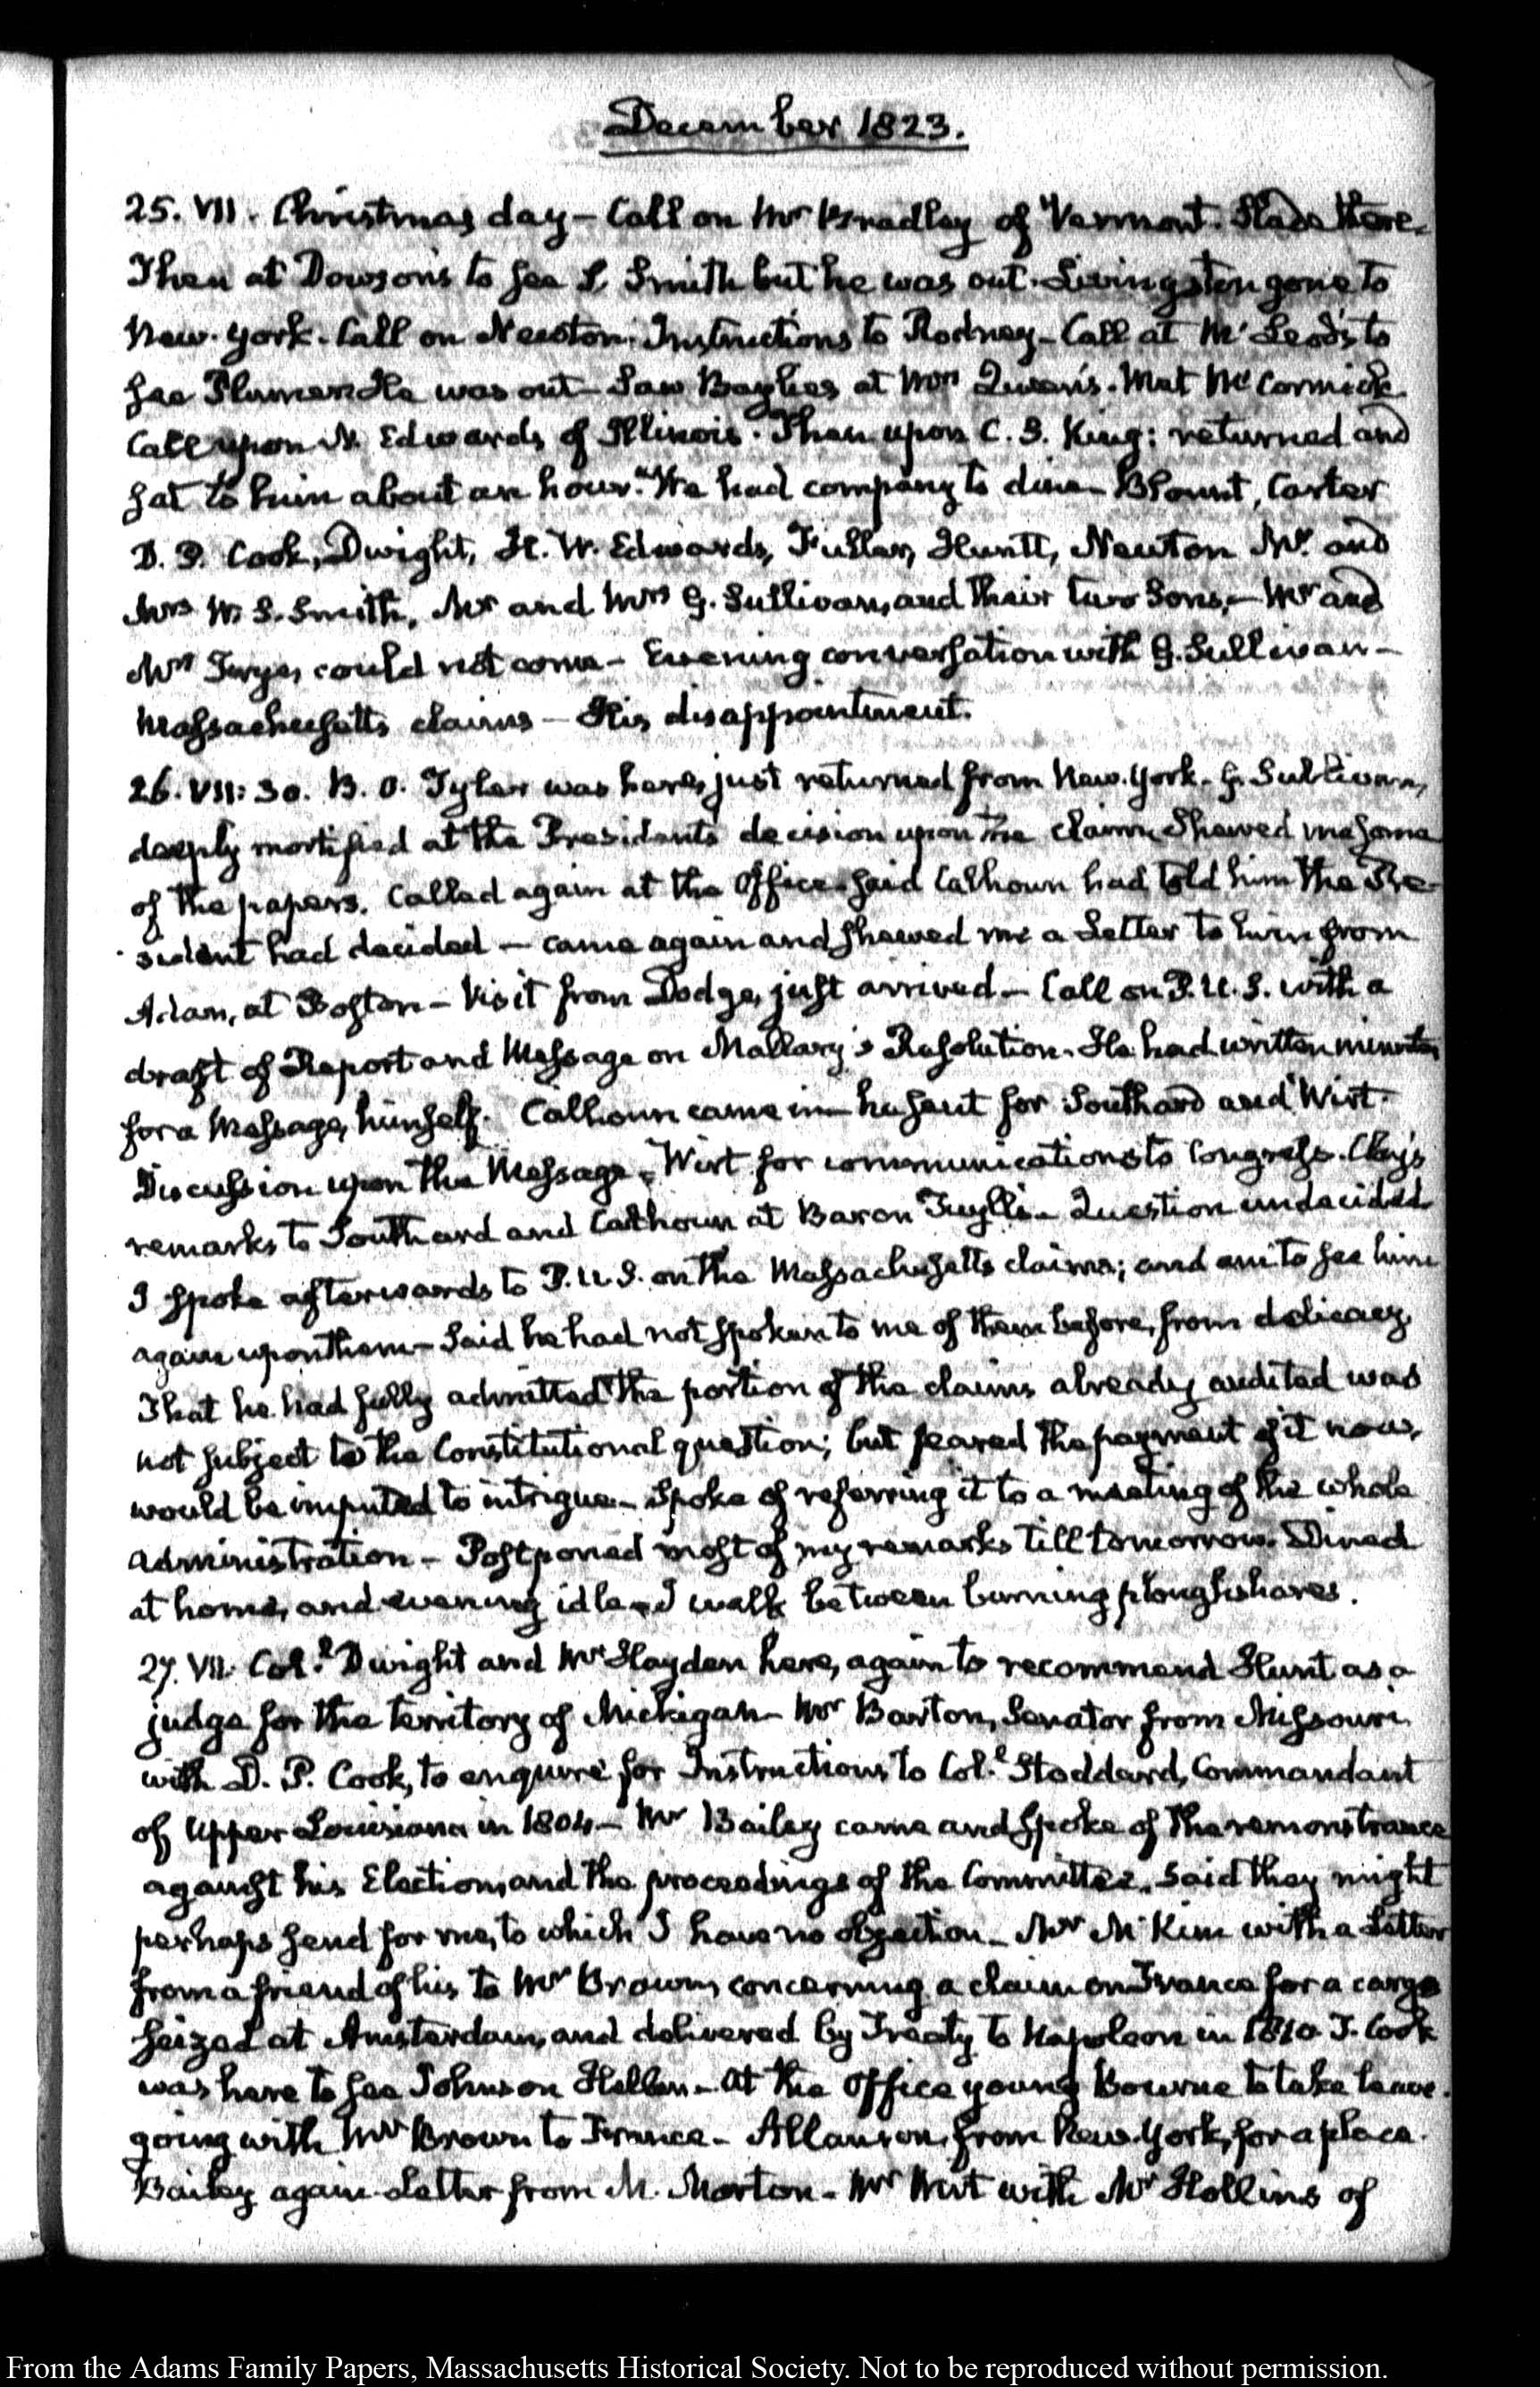 December 1823.
25. VII. Christmas day – Call on Mr Bradley of Vermont. Slade there.
Then at Dowson's to see S. Smith but he was out. Livingston gone to
New-York. Call on Newton. Instructions to Rodney – Call at McLeod's to
see Plumer. He was out – Saw Baylies at Mrs Queen's. Met McCormick
Call upon N. Edwards of Illinois. Then upon C. B. King: returned and
sat to him about an hour. We had company to dine – Blount, Carter
D. P. Cook, Dwight, H. W. Edwards, Fuller, Huntt, Newton Mr. and
Mrs W. S. Smith, Mr and Mrs G. Sullivan, and their two Sons, – Mr and
Mrs Frye, could not come – Evening conversation with G. Sullivan –
Massachusetts claims – His disappointment.
26. VII: 30. B. O. Tyler was here, just returned from New-York. G. Sullivan,
deeply mortified at the Presidents decision upon the claim. Shewed me some
of the papers. Called again at the Office – said Calhoun had told him the Pre-
sident had decided – came again and shewed me a Letter to him from
Adam, at Boston – Visit from Dodge, just arrived – Call on P. U. S. with a
draft of Report and Message on Mallary's Resolution. He had written minutes
for a Message, himself. Calhoun came in – he sent for Southard and Wirt.
Discussion upon the Message – Wirt for communication to Congress. Clay's
remarks to Southard and Calhoun at Baron Tuyll's – Question undecided
I spoke afterwards to P. U. S. on the Massachusetts claims; and am to see him
again upon them – Said he had not spoken to me of them before, from delicacy.
That he had fully admitted the portion of the claims already audited was
not subject to the Constitutional question; but feared the payment of it now,
would be imputed to intrigue – Spoke of referring it to a meeting of the whole
administration – Postponed most of my remarks till tomorrow. Dined
at home, and evening idle – I walk between burning ploughshares.
27. VII. Coll. Dwight and Mr Hayden here, again to recommend Hunt as a
judge for the territory of Michigan – Mr Barton, Senator from Missouri
with D. P. Cook, to enquire for Instructions to Coll. Stoddard, Commandant
of Upper Louisiana in 1804 – Mr Bailey came and spoke of the remonstrance
against his Election, and the proceedings of the Committee. Said they might
perhaps send for me, to which I have no objection – Mr McKim with a Letter
from a friend of his to Mr Brown, concerning a claim on France for a cargo
seized at Amsterdam, and delivered by Treaty to Napoleon in 1810. T. Cook
was here to see Johnson Hellen – At the Office young Bourne to take leave.
going with Mr Brown to France – Allanson, from New-York, for a place.
Bailey again – Letter from M. Morton – Mr Wirt with Mr Hollins of
From the Adams Family Papers, Massachusetts Historical Society. Not to be reproduced without permission.